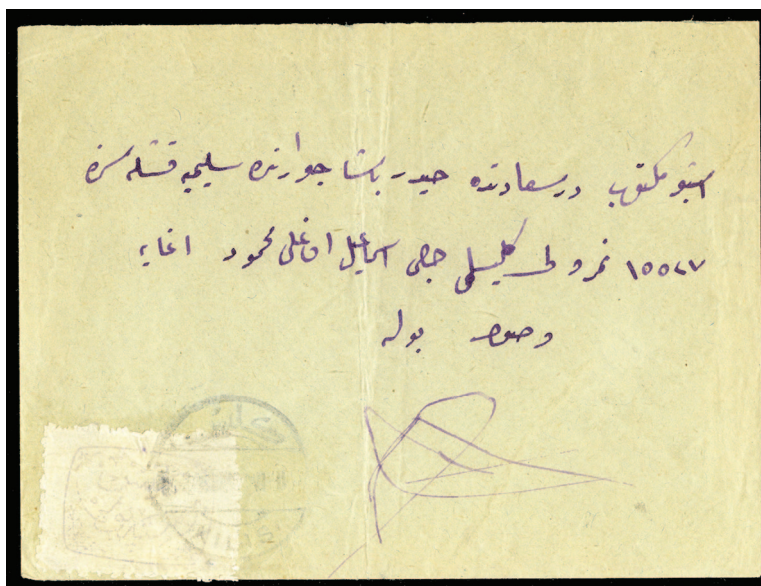 اشبو مكتوب درسعادتده حيدر پاشا جوارنده سليميه قشله سنده
١٥٥٢٧ نمرولى كليسلى حاجى اسماعيل اوغلى محمود اغايه
وصول بوله
KILIS